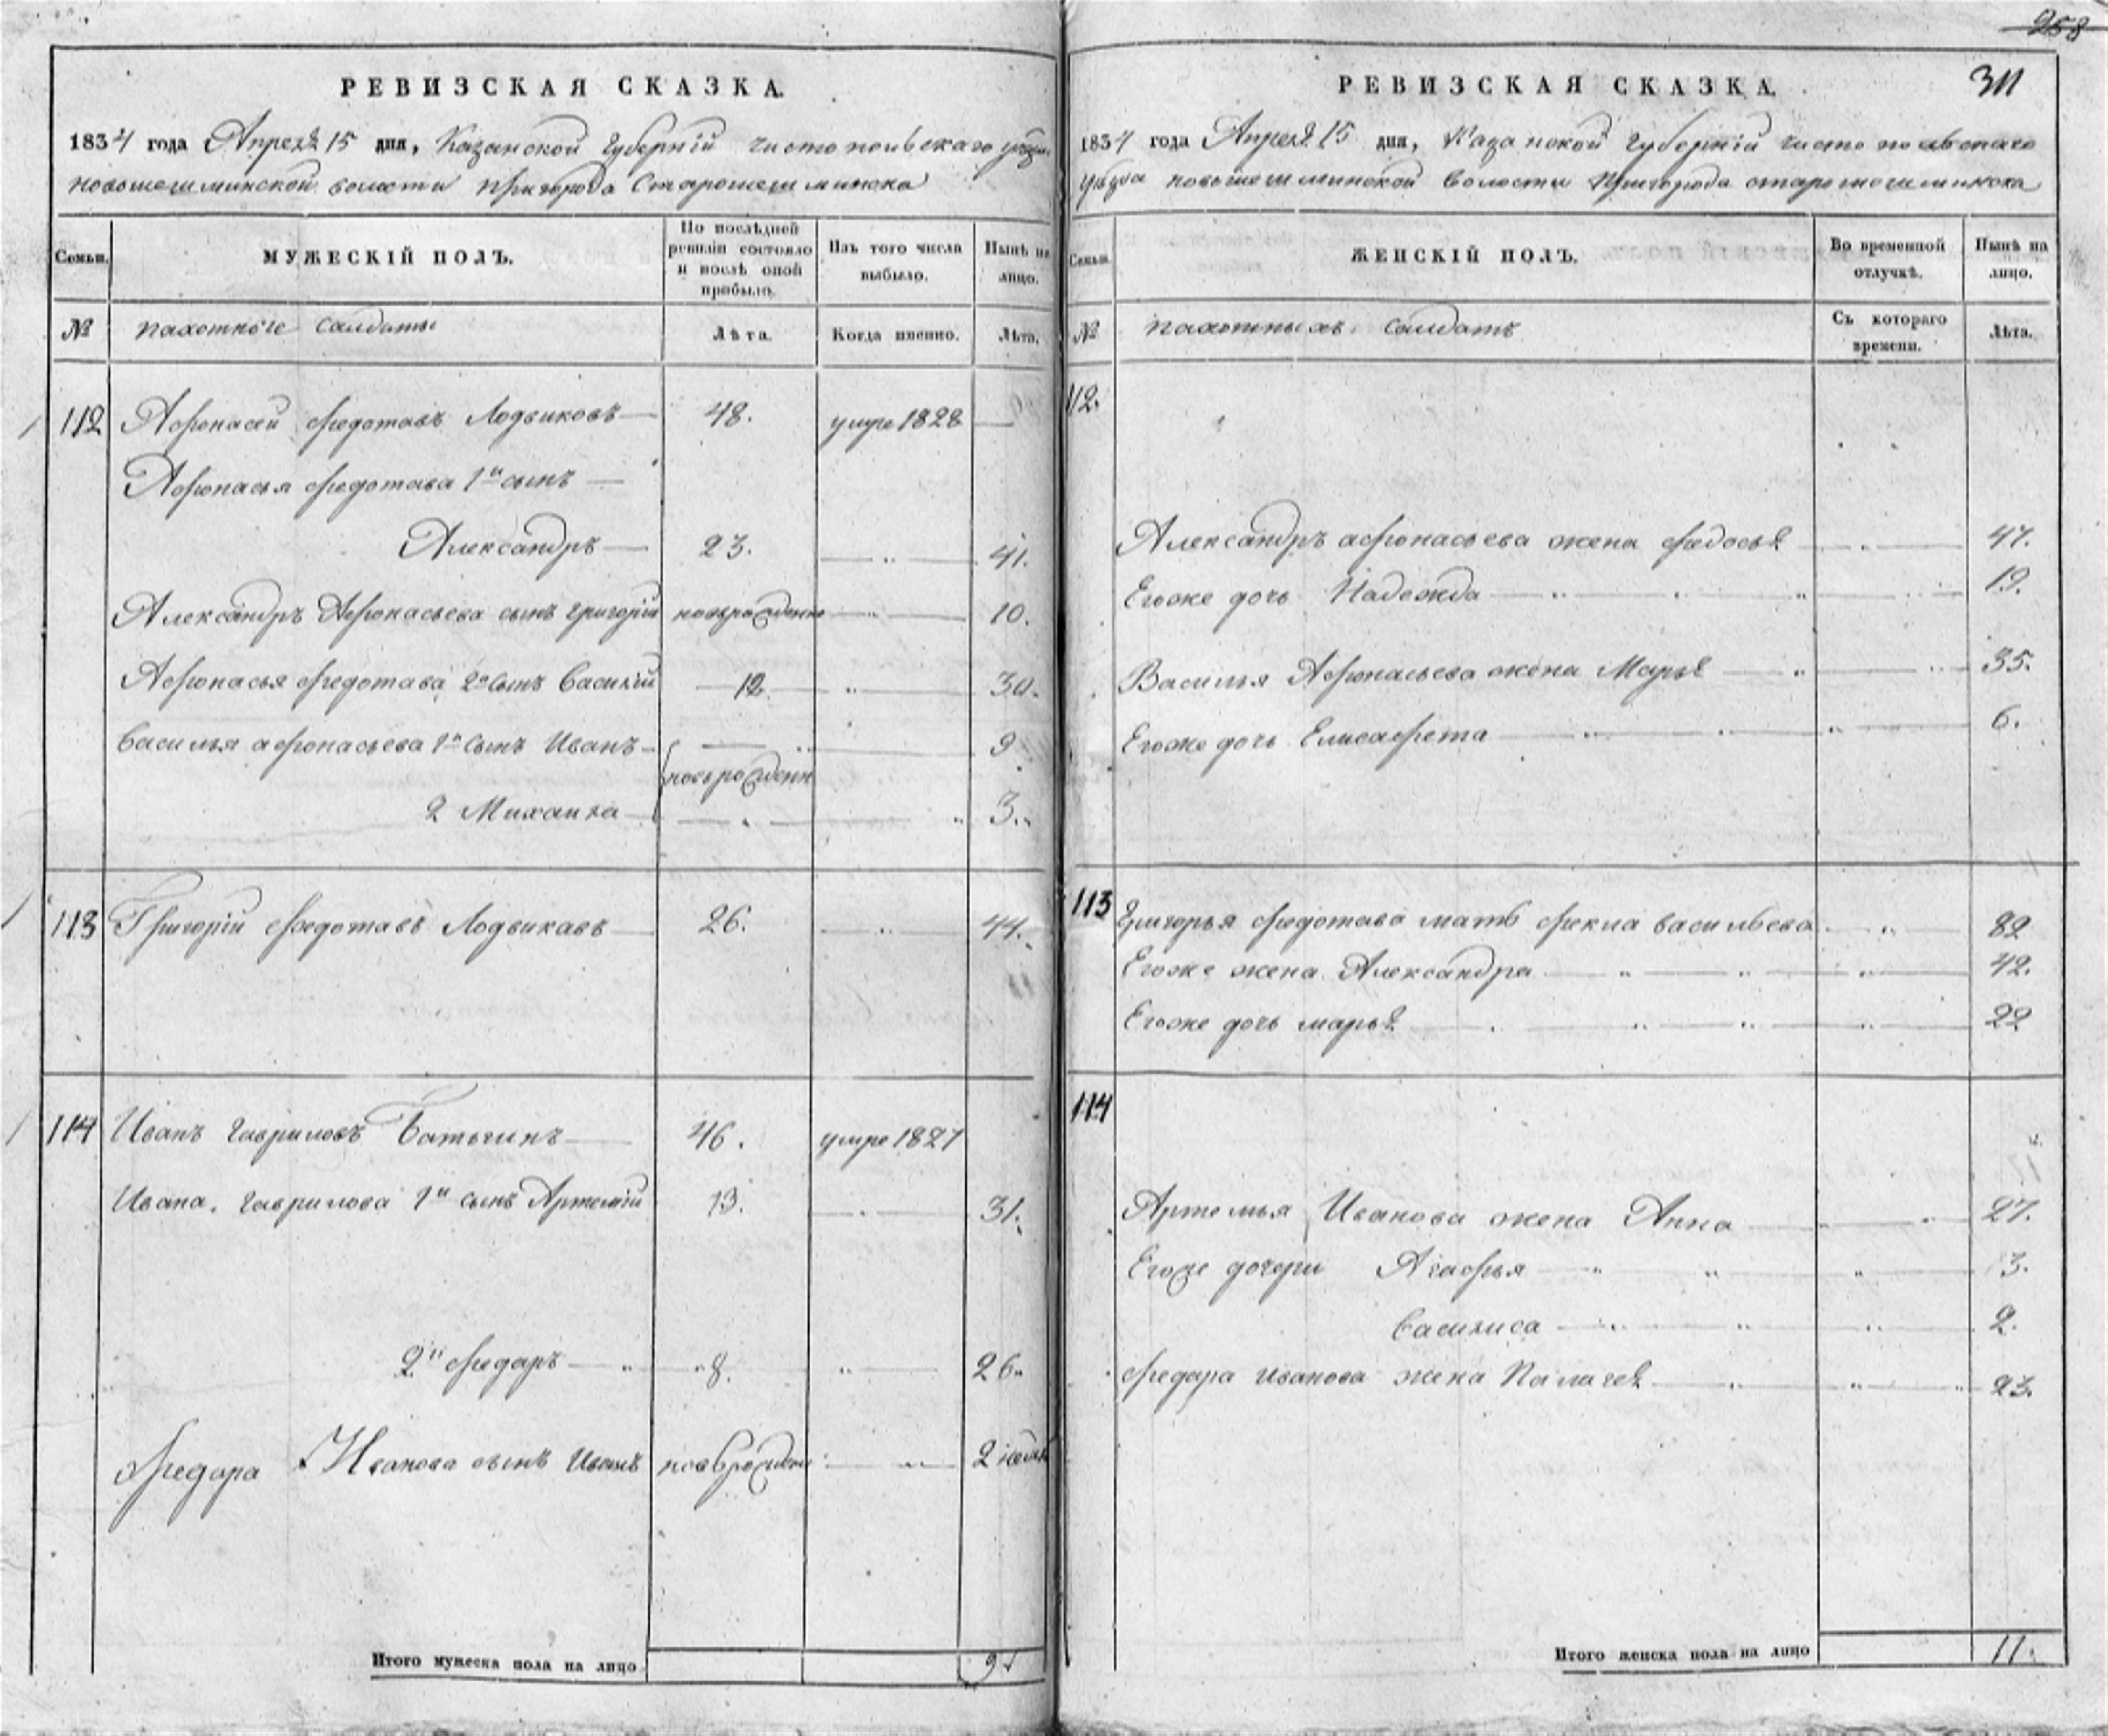 258
РЕВИЗСКАЯ СКАЗКА.
1834 года Апреля 15 дня, Казанской Губерній чистопольскаго уѣзда
новошешминской волости пригорода Старошешминска
Семьи.
МУЖЕСКІЙ ПОЛЪ.
По послѣдней ревизіи состояло и послѣ оной прибыло.
Изъ того числа выбыло.
Нынѣ на лицо.
№
пахотные салдаты
Лѣта.
Когда именно.
Лѣта.
112 Афонасей Федотавъ Лодвиковъ 48. умре 1828
Афонасья Федотава 1й сынъ
Александръ 23. 41.
Александръ Афонасьева сынъ григорій новърожденно 10.
Афонасья Федотава 2й сынъ Василій 12. 30.
Василья афонасьева 1й сынъ Иванъ 9
новърожденн
2 Михаила 3.
113 Григорій Федотавъ Лодвикавъ 26. 44.
114 Иванъ Гавриловъ Батыгинъ 46. умре 1827
Ивана Гаврилова 1й сынъ Артемій 13. 31.
2й Федаръ 8. 26.
Федара Иванова сынъ Иванъ новърожден 2 недел
Итого мужеска пола на лицо 9
311
РЕВИЗСКАЯ СКАЗКА.
1834 года Апреля 15 дня, Казанской Губерній чистопольскаго
уѣзда новошешминской волости Пригорода старошешминска
Семьи.
ЖЕНСКІЙ ПОЛЪ.
Во временной отлучкѣ.
Нынѣ на лицо.
№
пахотныхъ салдатъ
Съ котораго времени.
Лѣта.
112.
Александръ афонасьева жена Федосья 47.
Егоже дочь Надежда 19.
Василья Афонасьева жена Марья 35.
Егоже дочь Елисафета 6.
113 Григорья Федотава мать Фекла васильева 82
Егоже жена Александра 42.
Егоже дочь марья 22
114
Артемья Иванова жена Анна 27.
Егоже дочери Агафья 3.
Василиса 2.
Федара Иванова жена Палагея 23.
Итого женска пола на лицо 11.